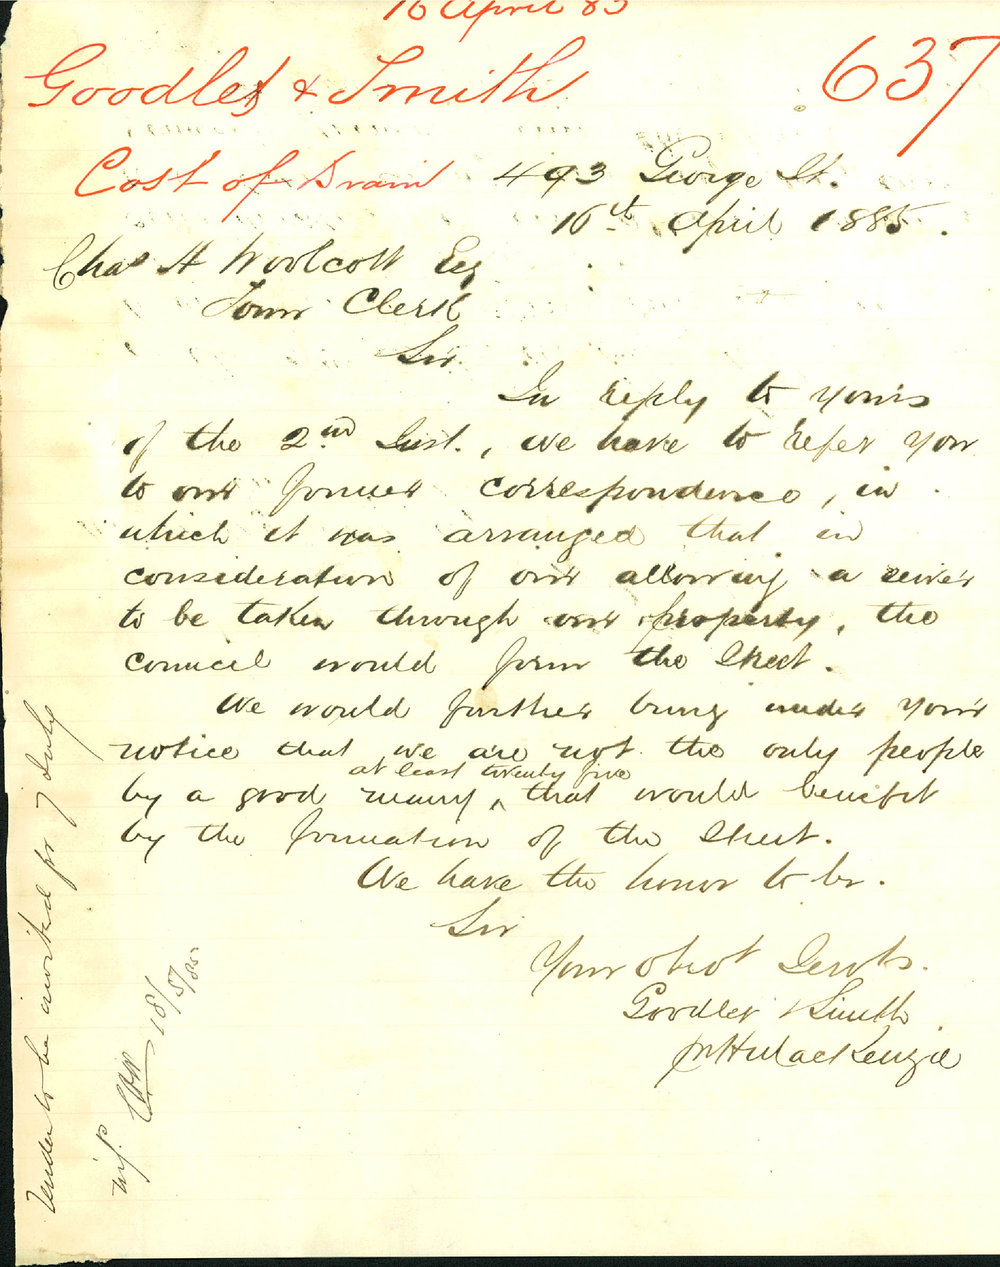 16 April 85
Goodlet & Smith
637
Cost of Drain
493 George St.
16th April 1885.
Chas H Woolcott Esq
Town Clerk
Sir
In reply to yours
of the 2nd Inst., we have to refer you
to our former correspondence, in
which it was arranged that in
consideration of our allowing a sewer
to be taken through our property, the
council would form the Street.
We would further bring under your
notice that we are not the only people
at least twenty five
by a good many, ^ that would benefit
by the formation of the Street.
We have the honor to be.
Sir
Your obedt Servts.
Goodlet & Smith
pr H MacKenzie
Tender to be invited for 7 July
CHW 18/5/85